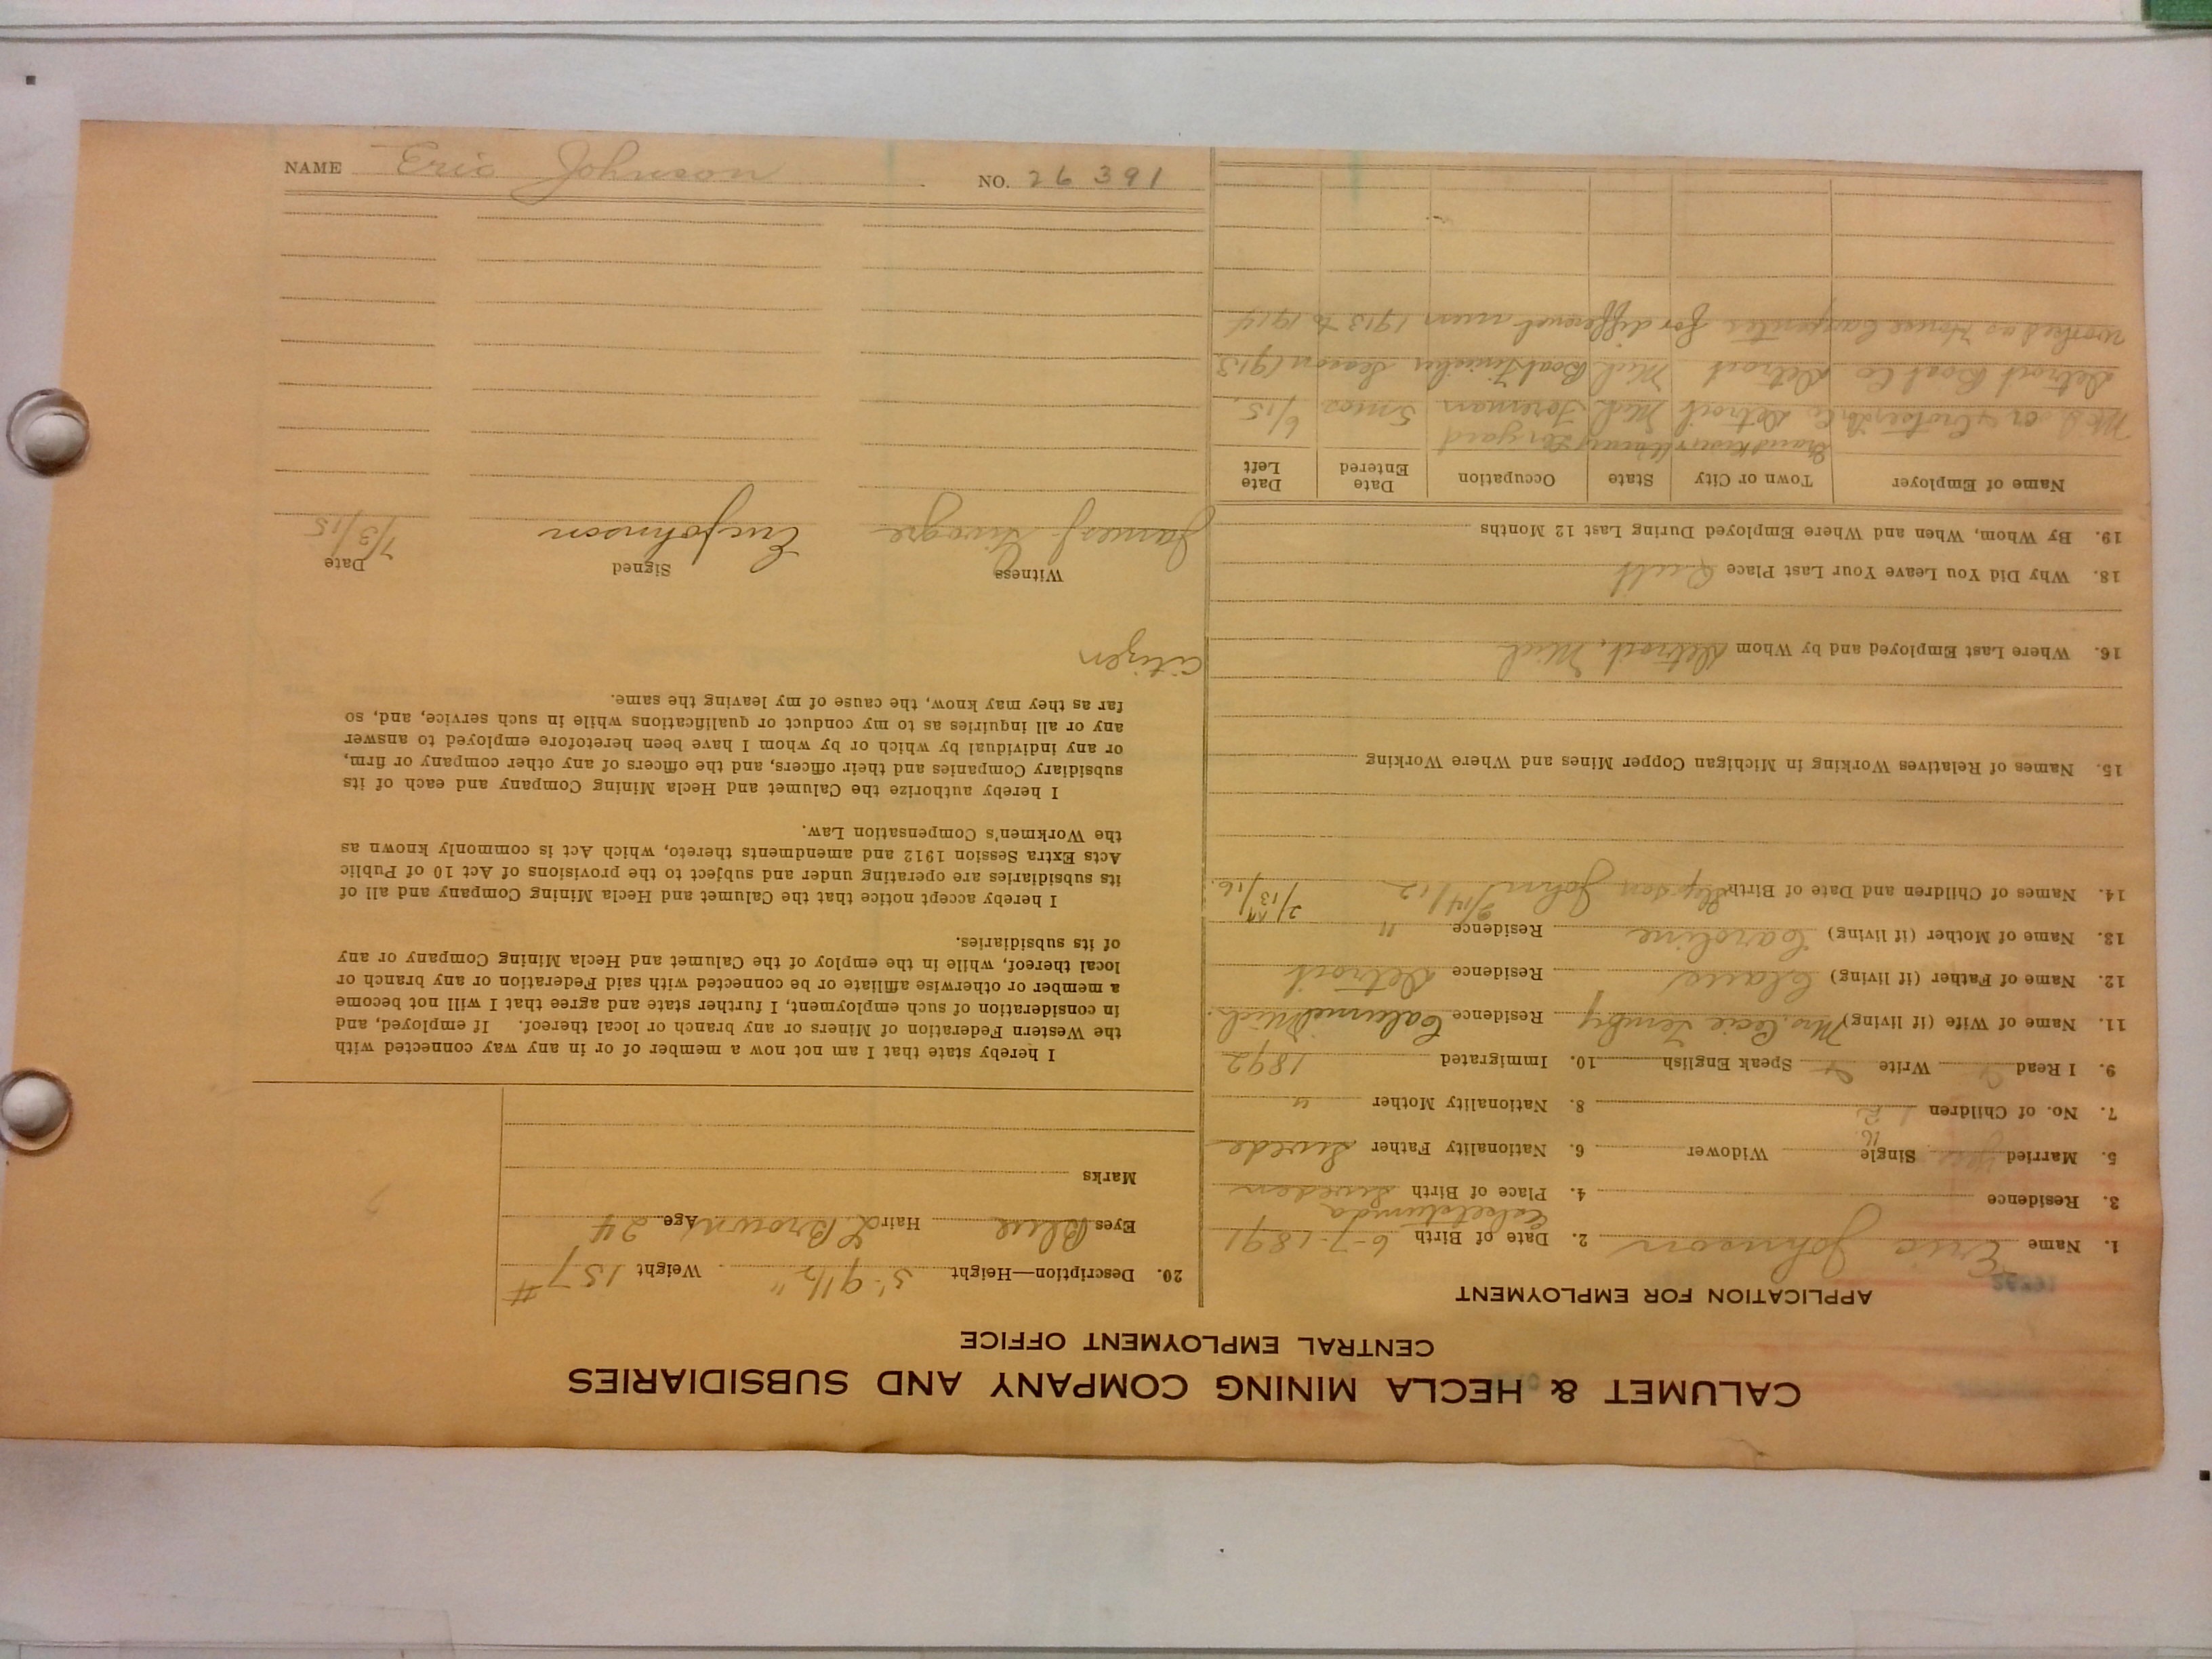 CALUMET & HECLA MINING COMPANY AND SUBSIDIARIES
CENTRAL EMPLOYMENT OFFICE
APPLICATION FOR EMPLOYMENT
1. Name Eric Johnson 2. Date of Birth 6-7-1891
3. Residence 4. Place of Birth Sweden
5. Married Yes Single Widower 6. Nationality Father Swede
7. No. of Children 2 8. Nationality Mother "
9. I Read Write Speak English 10. Immigrated 1892
11. Name of Wife (if living) Mrs. Residence Calumet Mich.
12. Name of Father (if living) Residence Detroit
13. Name of Mother (if living) Caroline Residence "
14. Names of Children and Date of Birth John 9/14/12 2/13/16
15. Names of Relatives Working in Michigan Copper Mines and Where Working
16. Where Last Employed and by Whom Detroit, Mich
18. Why Did You Leave Your Last Place Quit
19. By Whom, When and Where Employed During Last 12 Months
Name of Employer Town or City State Occupation Date Entered Date Left
Detroit Mich Foreman 5 mos 6/15
Detroit Boat Co Detroit Mich Boat Finisher Season 1913
worked as House Carpenter for different men 1913 to 1914
20. Description—Height 5' 9 1/2" Weight 157 #
Eyes Blue Hair L Brown Age 24
Marks
I hereby state that I am not now a member of or in any way connected with
the Western Federation of Miners or any branch or local thereof. If employed, and
in consideration of such employment, I further state and agree that I will not become
a member or otherwise affiliate or be connected with said Federation or any branch or
local thereof, while in the employ of the Calumet and Hecla Mining Company or any
of its subsidiaries.
I hereby accept notice that the Calumet and Hecla Mining Company and all of
its subsidiaries are operating under and subject to the provisions of Act 10 of Public
Acts Extra Session 1912 and amendments thereto, which Act is commonly known as
the Workmen's Compensation Law.
I hereby authorize the Calumet and Hecla Mining Company and each of its
subsidiary Companies and their officers, and the officers of any other company or firm,
or any individual by which or by whom I have been heretofore employed to answer
any or all inquiries as to my conduct or qualifications while in such service, and, so
far as they may know, the cause of my leaving the same.
Citizen
Witness Signed Date
James J. Eric Johnson 7/3/15
NAME Eric Johnson NO. 26391